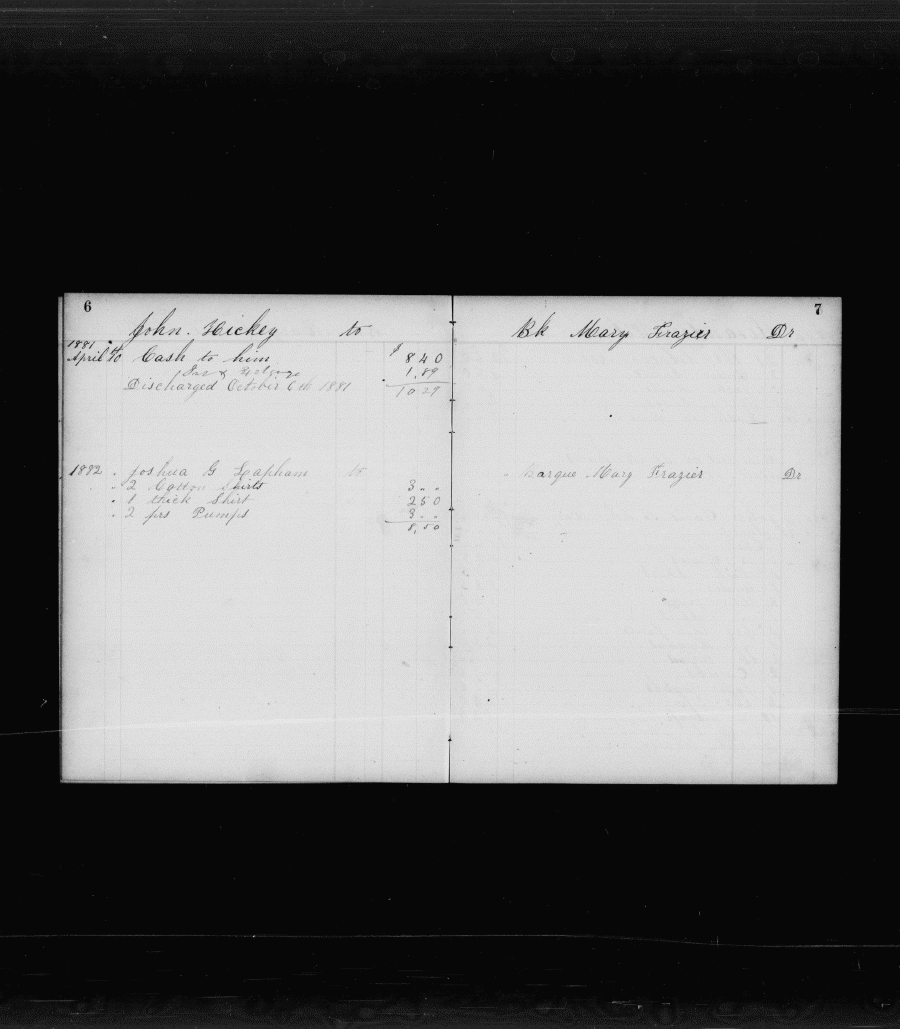 6
John. Hickey to
1881
April to Cash to him $ 8 40
Ins & 1.89
Discharged October 6th 1881 10 29
1882 . Joshua G Lapham to
" 2 Cotton Shirts 3 " "
" 1 thick Shirt 2 50
" 2 prs Pumps 3 " "
8,50
7
Bk Mary Frazier Dr
Barque Mary Frazier Dr